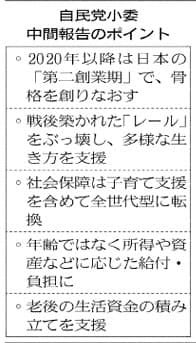 自民党小委
中間報告のポイント
○2020年以降は日本の
「第二創業期」で、骨
格を創りなおす
○戦後築かれた「レール」
をぶっ壊し、多様な生
き方を支援
○社会保障は子育て支援
を含めて全世代型に転
換
○年齢ではなく所得や資
産などに応じた給付・
負担に
○老後の生活資金の積み
立てを支援